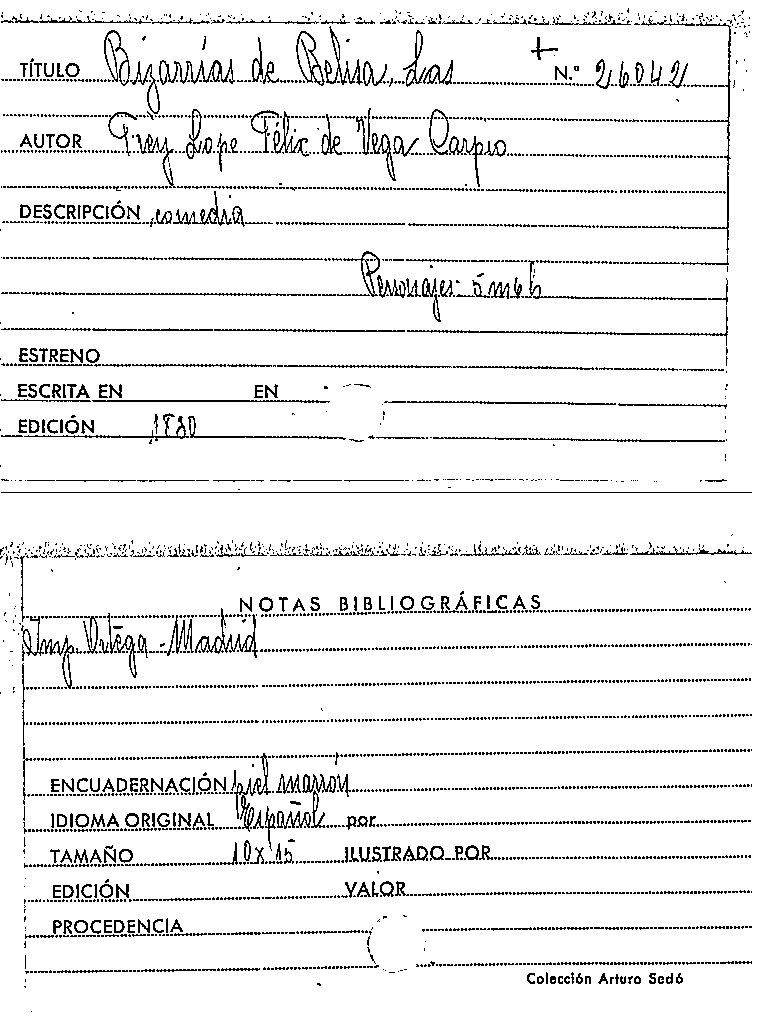 TÍTULO Bizarrías de Belisa, Las + N.º 26042
AUTOR Frey Lope Félix de Vega Carpio
DESCRIPCIÓN comedia
Personajes: 5 m 6 h
ESTRENO
ESCRITA EN EN
EDICIÓN 1830
NOTAS BIBLIOGRÁFICAS
Imp. Ortega - Madrid
ENCUADERNACIÓN piel marrón
IDIOMA ORIGINAL Español por
TAMAÑO 10 x 15 ILUSTRADO POR
EDICIÓN VALOR
PROCEDENCIA
Colección Arturo Sedó